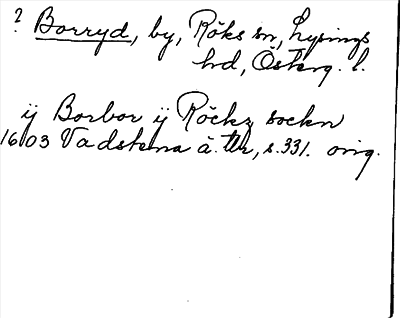 ? Borryd, by, Röks sn, Lysings
hd, Österg. l.
ÿ Borbor ÿ Röckz sockn
1603 Vadstena ä. tlr, s. 331. orig.